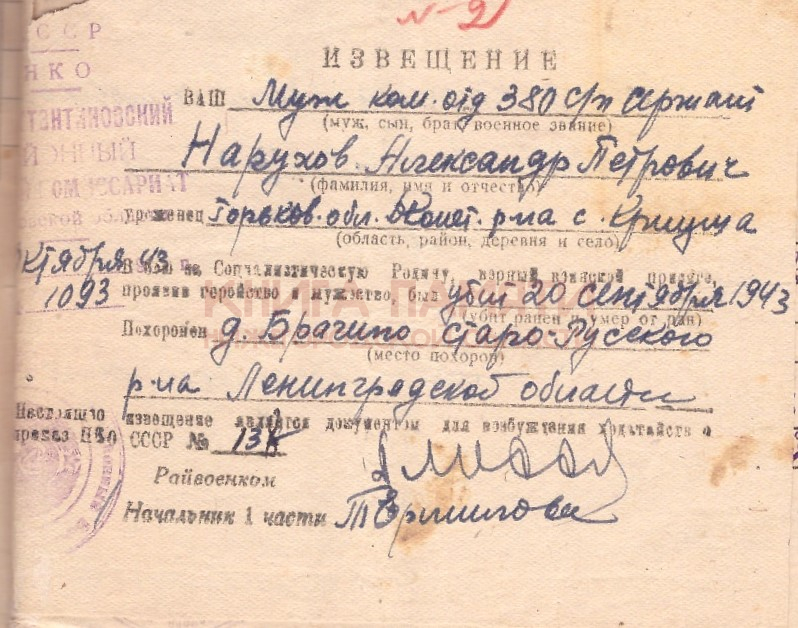 № 21
ССР
НКО
ИЗВЕЩЕНИЕ
ВАШ Муж ком. отд 380 с/п сержант
(муж, сын, брат, военное звание)
Нарухов Александр Петрович
(фамилия, имя и отчество)
уроженец Горьков. обл. р-на с. Криуша
(область, район, деревня и село)
В бою за Социалистическую Родину, верный воинской присяге,
октября 43 г.
1093
проявив геройство и мужество, был убит 20 сентября 1943
(убит ранен и умер от ран)
КНИГА ПАМЯТИ
Похоронен д. Брагино Старо-Русского
(место похорон)
р-на Ленинградской области
Настоящее извещение является документом для возбуждения ходатайств о
приказ НКО СССР № 138
Райвоенком
Начальник 1 части